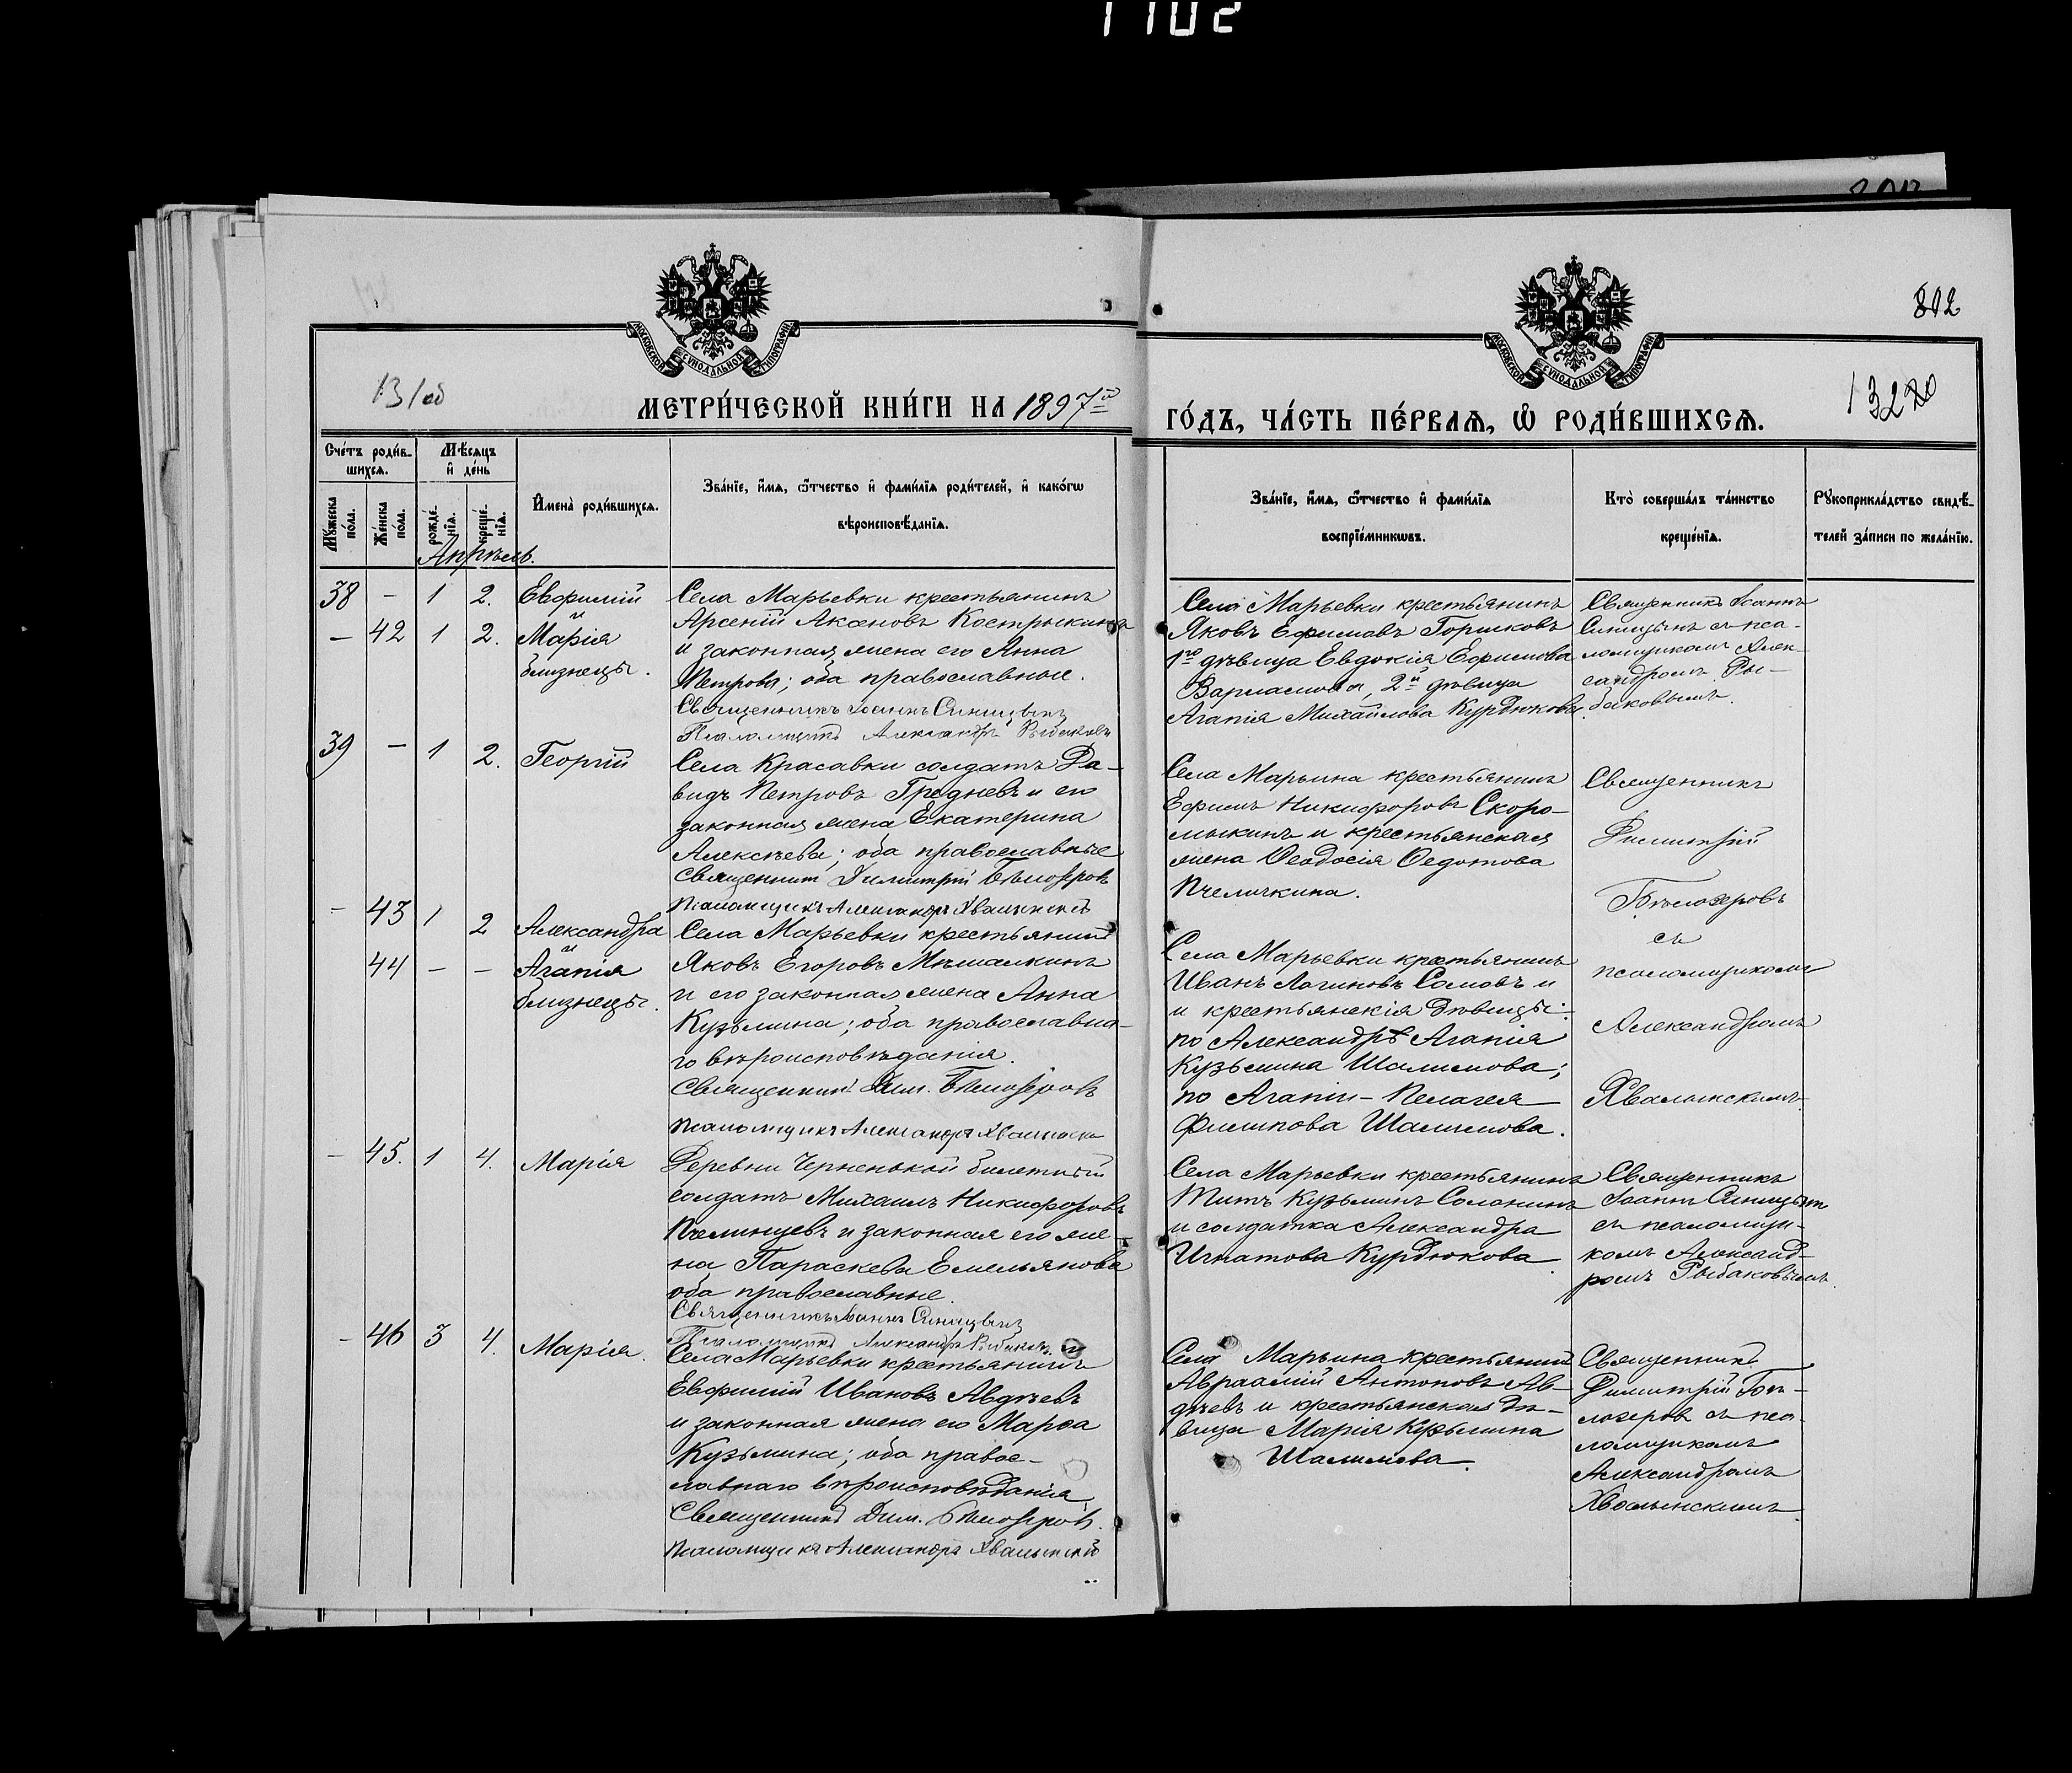 1702
802
МОСКОВСКОЙ СѴНОДАЛЬНОЙ ТИПОГРАФІИ
МОСКОВСКОЙ СѴНОДАЛЬНОЙ ТИПОГРАФІИ
131об
132
МЕТРИ́ЧЕСКОЙ КНИ́ГИ НА 1897й
ГО́ДЪ, ЧА́СТЬ ПЕ́РВАЯ, Ѡ҆ РОДИ́ВШИХСЯ.
Сче́тъ роди́в-
шихся.
Мѣ́сяцъ
и҆ де́нь
Мꙋ́жеска
по́ла.
Же́нска
по́ла.
рожде́-
нїя.
креще́-
нїя.
И҆мена̀ роди́вшихся.
Зва́нїе, и҆́мя, ѻ҆́тчество и҆ фами́лїя роди́телей, и҆ како́гѡ
вѣроисповѣ́данїя.
Зва́нїе, и҆́мя, ѻ҆́тчество и҆ фами́лїя
воспрїе́мникѡвъ.
Кто̀ соверша́лъ та́инство
креще́нїя.
Рꙋкоприкла́дство свидѣ́-
телей за́писи по жела́нїю.
Апрѣль.
38 – 1 2. Евфимій
и
– 42 1 2. Марія
близнецы.
Села Марьевки крестьянинъ
Арсеній Аксеновъ Кострыкинъ
и законная жена его Анна
Петрова; оба православные.
Священникъ Іоаннъ Синицынъ
Псаломщикъ Александръ Рыбаковъ
Села Марьевки крестьянинъ
Яковъ Ефимовъ Горшковъ
1го дѣвица Евдокія Ефимова
Варламова, 2й дѣвица
Агапія Михайлова Курдюкова.
Священникъ Іоаннъ
Синицынъ съ пса-
ломщикомъ Алек-
сандромъ Ры-
баковымъ.
39 – 1 2. Георгій
Села Красавки солдатъ Да-
видъ Петровъ Гредневъ и его
законная жена Екатерина
Алексѣева; оба православные
Священникъ Димитрій Бѣлозеровъ
Псаломщикъ Александръ Хвалынскій
Села Марьина крестьянинъ
Ефимъ Никифоровъ Скоро-
мыкинъ и крестьянская
жена Ѳеодосія Ѳедотова
Пчеличкина.
Священникъ
Димитрій
Бѣлозеровъ
съ
псаломщикомъ
Александромъ
Хвалынскимъ.
– 43 1 2 Александра
и
44 – – Агапія
близнецы.
Села Марьевки крестьянинъ
Яковъ Егоровъ Мѣшалкинъ
и его законная жена Анна
Кузьмина; оба православна-
го вѣроисповѣданія.
Священникъ Дим. Бѣлозеровъ
Псаломщикъ Александръ Хвалынскій
Села Марьевки крестьянинъ
Иванъ Логиновъ Сомовъ и
и крестьянскія дѣвицы:
по Александрѣ Агапія
Кузьмина Шалимова;
по Агапіи – Пелагея
Филипова Шалимова.
– 45. 1 4. Марія
Деревни Черненькой билетный
солдатъ Михаилъ Никифоровъ
Пчелинцевъ и законная его же-
на Параскева Емельянова
оба православные.
Священникъ Іоаннъ Синицынъ
Псаломщикъ Александръ Рыбаковъ
Села Марьевки крестьянинъ
Титъ Кузьминъ Солонинъ
и солдатка Александра
Игнатова Курдюкова.
Священникъ
Іоаннъ Синицынъ
съ псаломщи-
комъ Александ-
ромъ Рыбаковымъ.
– 46 3 4. Марія.
Села Марьевки крестьянинъ
Евфимій Ивановъ Авдѣевъ
и законная жена его Марѳа
Кузьмина; оба правос-
лавнаго вѣроисповѣданія
Священникъ Дим. Бѣлозеровъ.
Псаломщикъ Александръ Хвалынскій
Села Марьина крестьянинъ
Авраамій Антоновъ Ав-
дѣевъ и крестьянская дѣ-
вица Марія Кузьмина
Шалимова.
Священникъ
Димитрій Бѣ-
лозеровъ съ пса-
ломщикомъ
Александромъ
Хвалынскимъ.